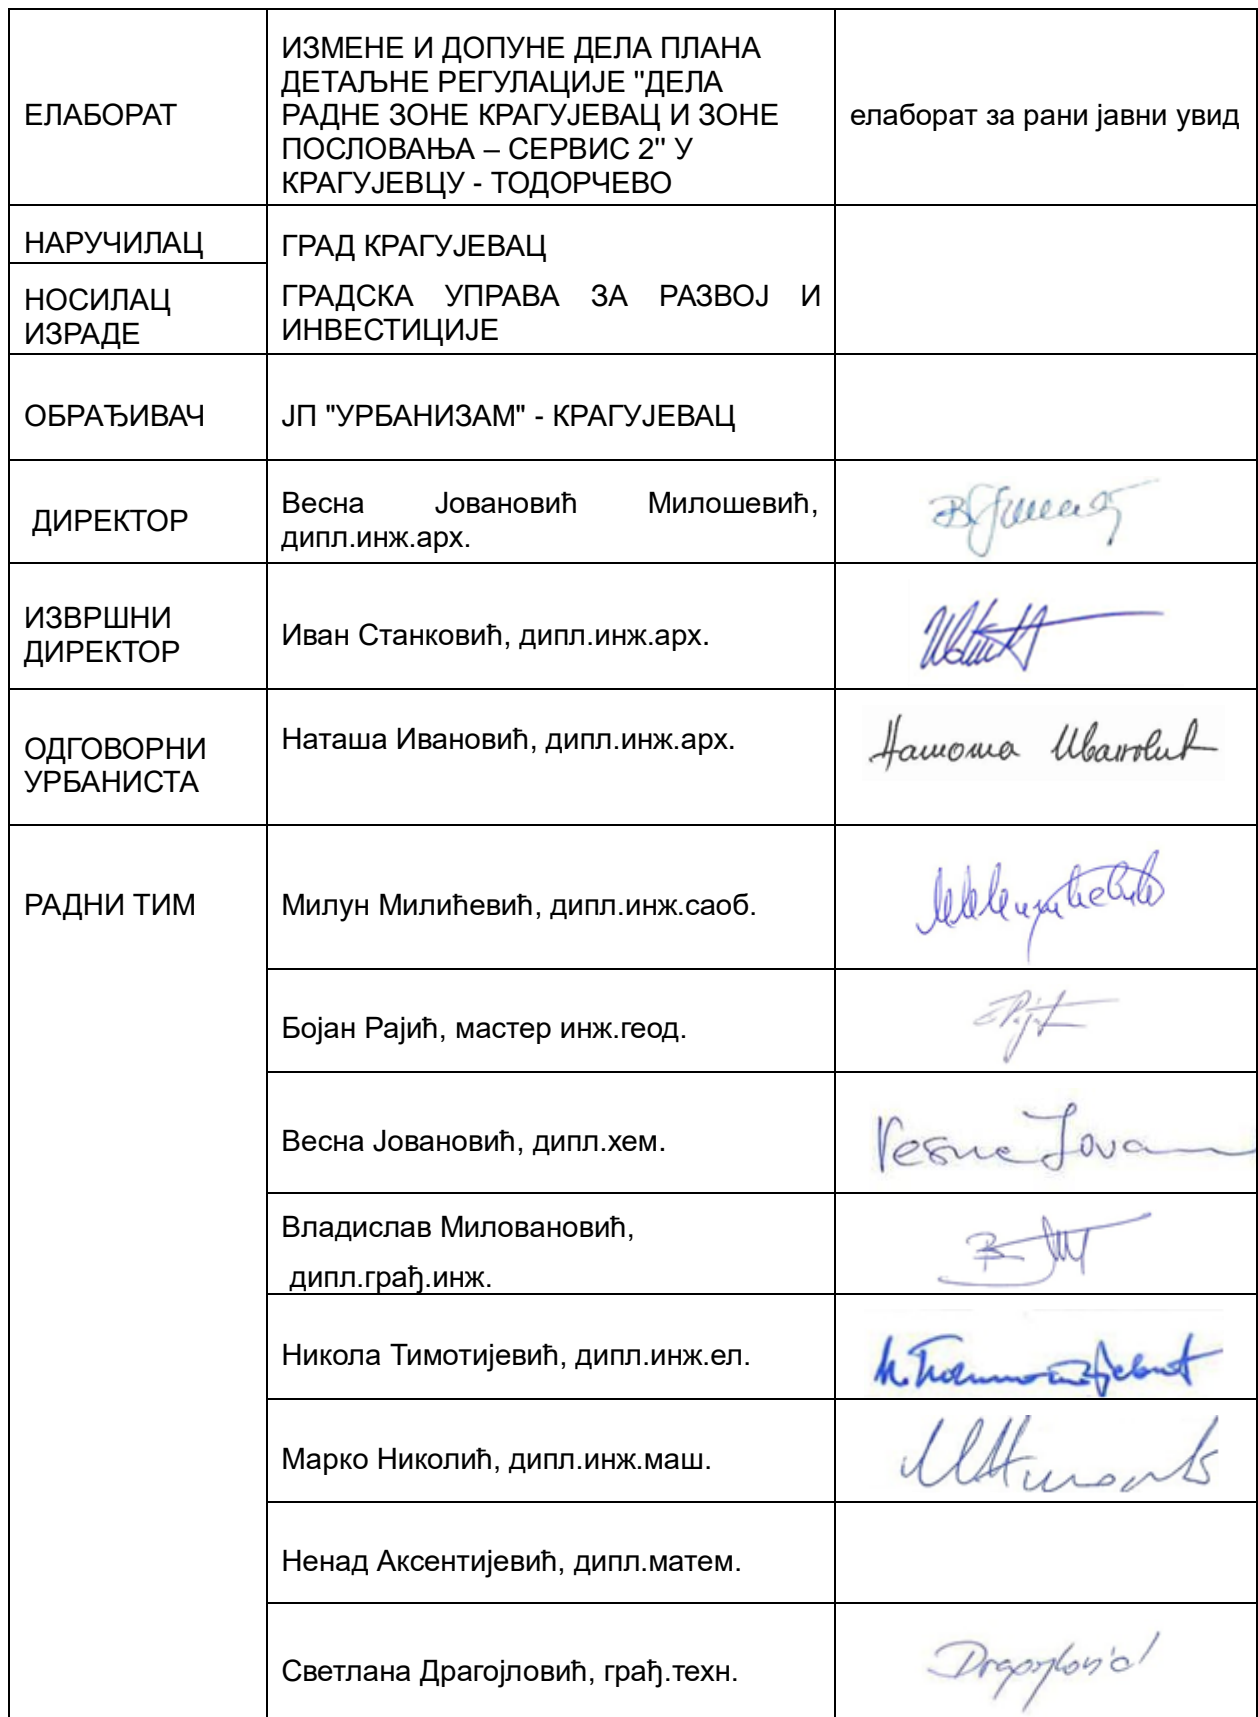 ЕЛАБОРАТ
ИЗМЕНЕ И ДОПУНЕ ДЕЛА ПЛАНА
ДЕТАЉНЕ РЕГУЛАЦИЈЕ "ДЕЛА
РАДНЕ ЗОНЕ КРАГУЈЕВАЦ И ЗОНЕ
ПОСЛОВАЊА – СЕРВИС 2" У
КРАГУЈЕВЦУ - ТОДОРЧЕВО
елаборат за рани јавни увид
НАРУЧИЛАЦ
ГРАД КРАГУЈЕВАЦ
НОСИЛАЦ
ИЗРАДЕ
ГРАДСКА УПРАВА ЗА РАЗВОЈ И
ИНВЕСТИЦИЈЕ
ОБРАЂИВАЧ
ЈП "УРБАНИЗАМ" - КРАГУЈЕВАЦ
ДИРЕКТОР
Весна Јовановић Милошевић,
дипл.инж.арх.
ИЗВРШНИ
ДИРЕКТОР
Иван Станковић, дипл.инж.арх.
ОДГОВОРНИ
УРБАНИСТА
Наташа Ивановић, дипл.инж.арх.
Наташа Ивановић
РАДНИ ТИМ
Милун Милићевић, дипл.инж.саоб.
Бојан Рајић, мастер инж.геод.
Весна Јовановић, дипл.хем.
Vesna Jova
Владислав Миловановић,
дипл.грађ.инж.
Никола Тимотијевић, дипл.инж.ел.
Марко Николић, дипл.инж.маш.
Ненад Аксентијевић, дипл.матем.
Светлана Драгојловић, грађ.техн.